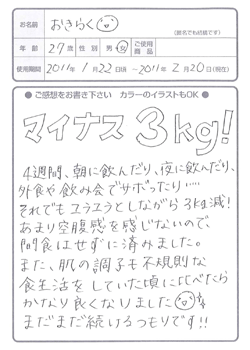 お名前 おきらく
(匿名でも結構です)
年齢 27歳 性別 男・女 ご使用商品
使用期間 2011年1月22日頃~2011年2月20日(現在)
●ご感想をお書き下さい カラーのイラストもOK●
マイナス3kg!
4週間、朝に飲んだり、夜に飲んだり、
外食や飲み会でサボったり……
それでもユラユラとしながら3kg減!
あまり空腹感を感じないので、
間食はせずに済みました。
また、肌の調子も不規則な
食生活をしていた頃に比べたら
かなり良くなりました
まだまだ続けるつもりです!!